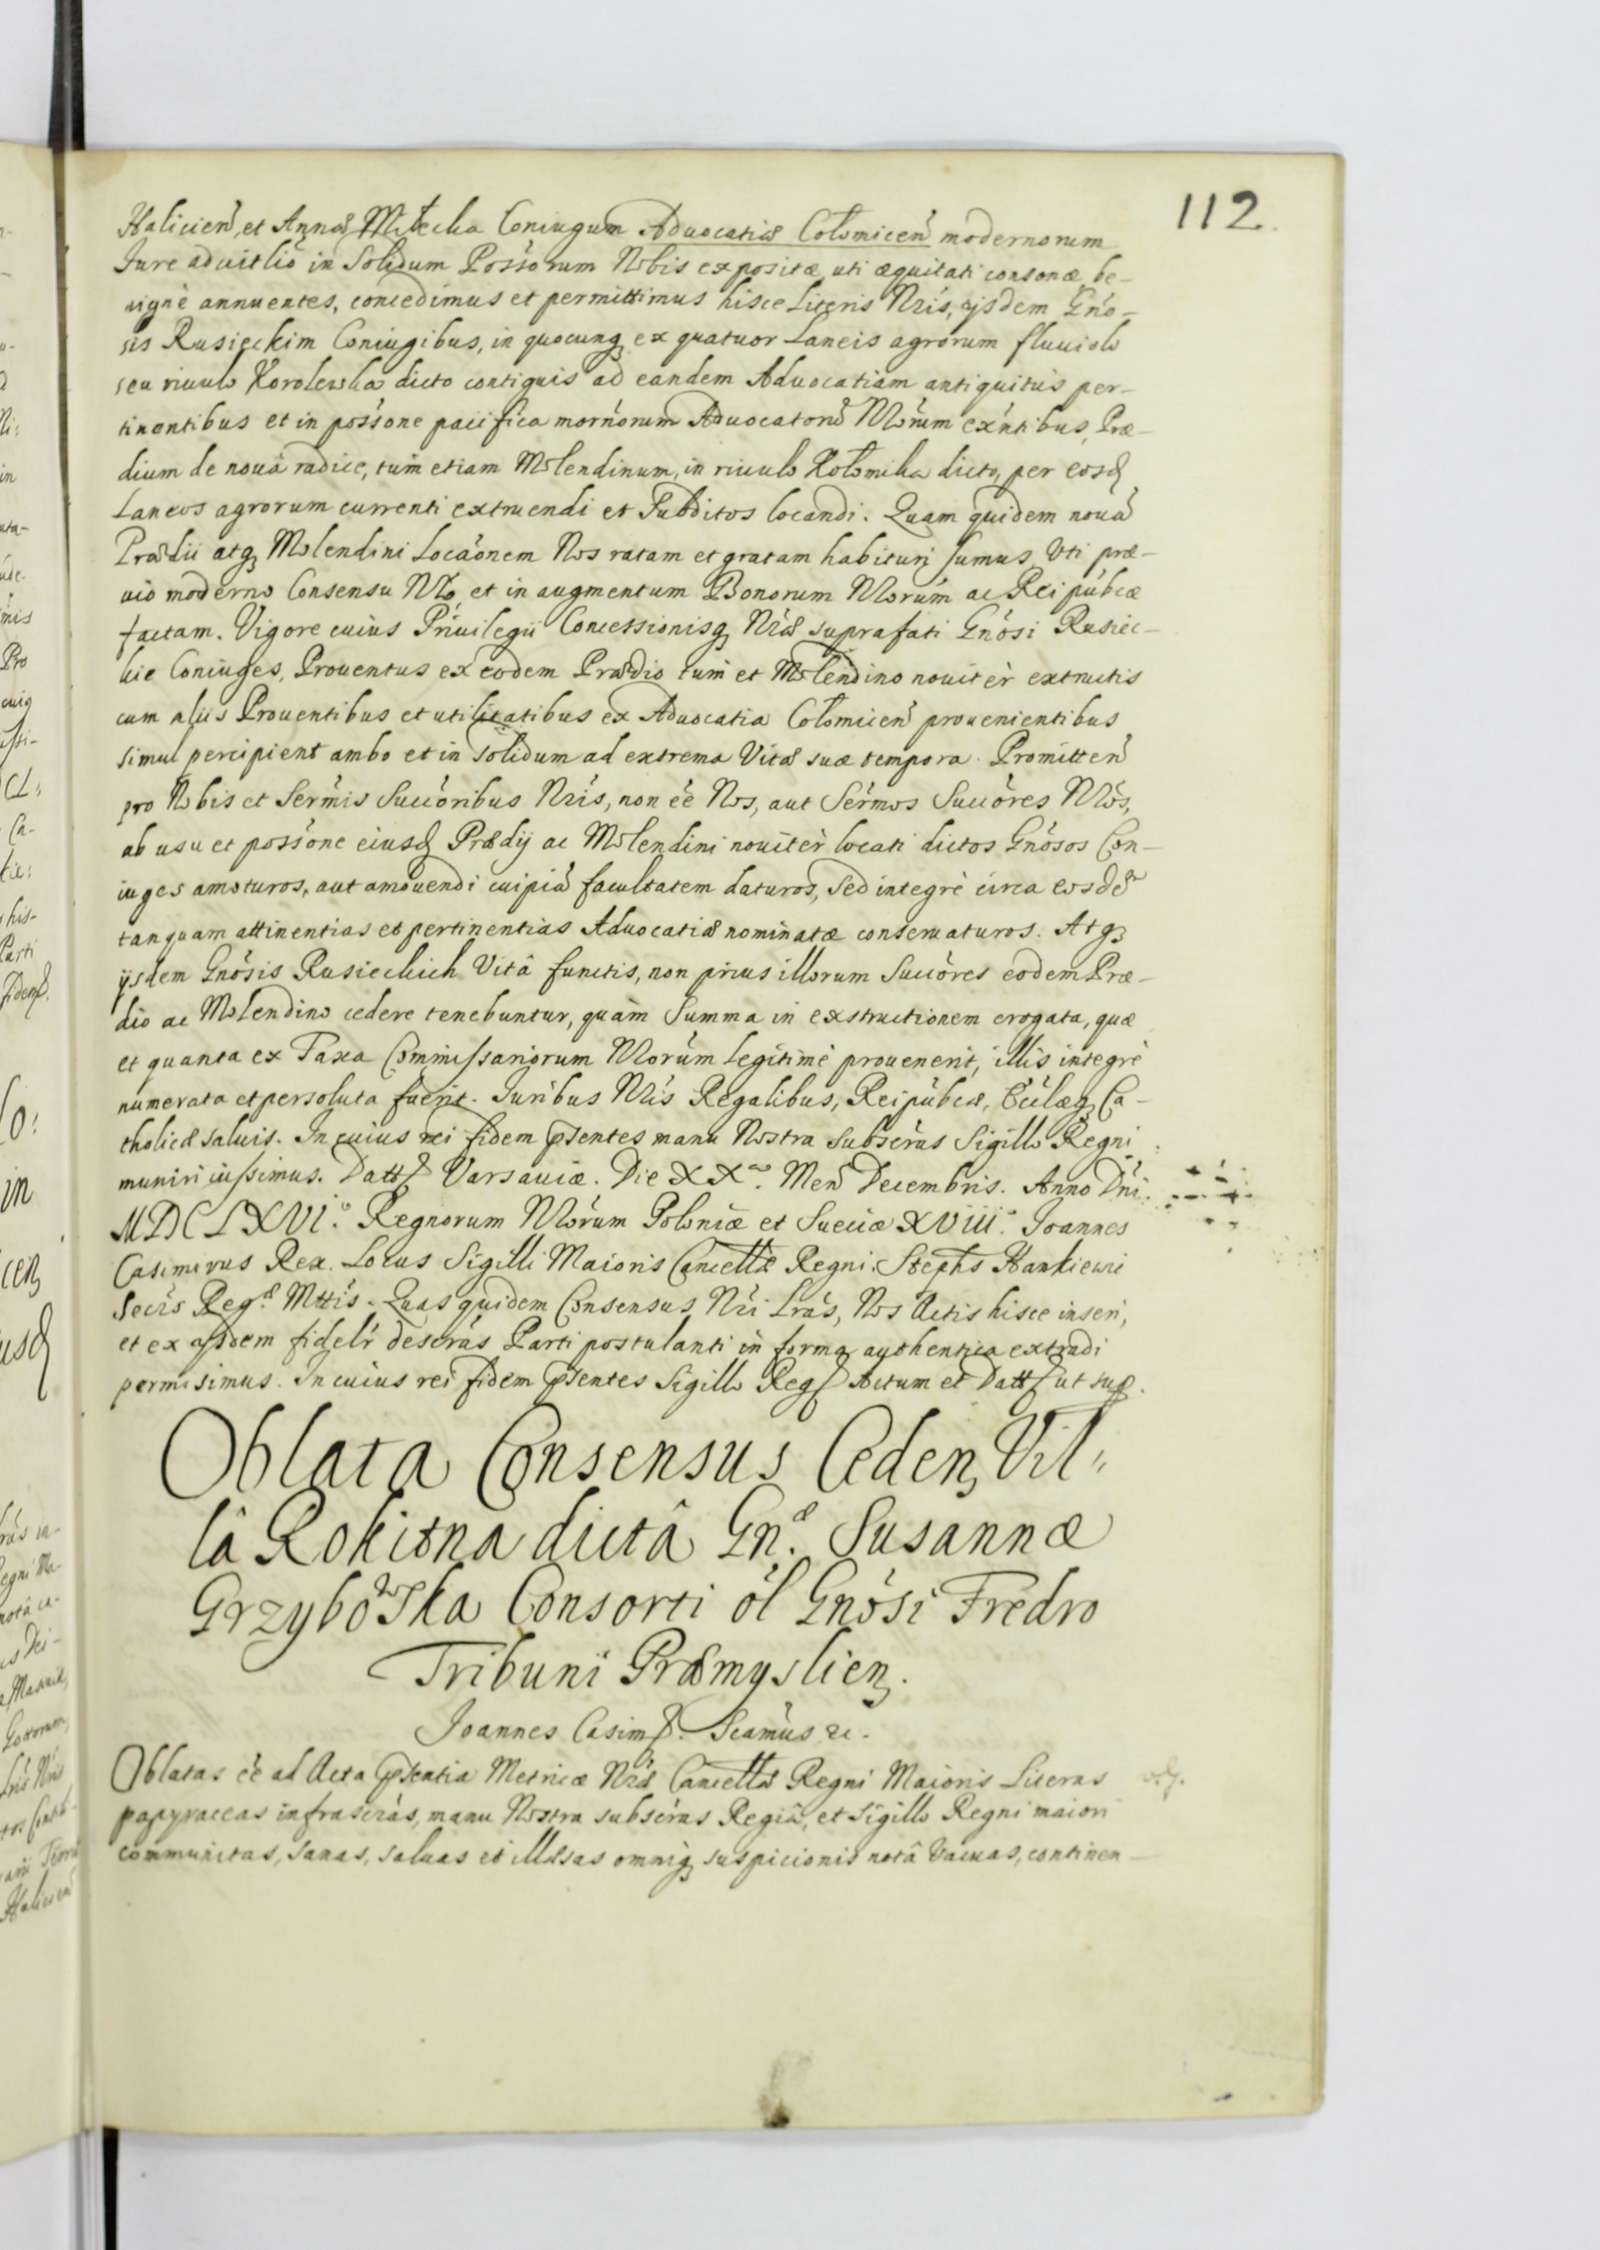 112.
Halicień, et Annæ Mitecka Coniugum Aduocatiæ Colomiceń modernorum
Jure aduitliô in Solidum Possorum Nobis expositæ uti æquitati consonæ, be-
nignè annuentes, concedimus et permittimus hisce Literis Nrís, ijsdem Gńo-
sis Rusieckim Coniugibus, in quocunq ex quatuor Laneis agrorum fluuiolo
seu riuulo Korolewka dicto contiguis ad eandem Aduocatiam antiquitùs per-
tinentibus et in possóne pacifica mornórum Aduocatorũ Nŕorum exńtibus, Præ-
dium de nouâ radice, tum etiam Molendinum, in riuulo Kolomika dicto, per eosd
Laneos agrorum currenti extruendi et Subditos locandi. Quam quidem nouã
Prædii atq Molendini Locaõnem Nos ratam et gratam habituri sumus, Uti præ-
uiò moderno Consensu Nŕo, et in augmentum Bonorum Nŕorum ac Reipúbcæ
factam. Vigore cuius Priuilegii Concessionisq Nŕæ suprafati Gńosi Rusiec-
kie Coniuges, Prouentus ex eodem Prædio tum et Molendino nouitèr extructis
cum aliis Prouentibus et utilitatibus ex Aduocatia Colomiceń prouenientibus
simul percipient ambo et in solidum ad extrema Vitæ suæ tempora. Promitteń
pro Nobis et Sermis Succoribus Nrís, non éé Nos, aut Sermos Succóres Nŕos,
ab usu et possóne eiusd Prædij ac Molendini nouitèr locati dictos Gńosos Con-
iuges amoturos, aut amouendi cuipiã facultatem daturos, Sed integrè circa eosdẽ
tanquam attinentias et pertinentias Aduocatiæ nominatæ conseruaturos. Atq
ijsdem Gńosis Rusieckich Vitâ functis, non prius illorum Succóres eodem Præ-
dio ac Molendino cedere tenebuntur, quàm Summa in exstructionem erogata, quæ
et quanta ex Taxa Commissariorum Nŕorum legitimè prouenerit, illis integrè
numerata et persoluta fuerit. Juribus Nŕis Regalibus, Reipúbcæ, Ecclæq Ca-
tholicæ saluis. In cuius rei fidem pŕsentes manu Nostra subscras Sigillo Regni
muniri iussimus. Datt Varsauiæ. Die XXa. Meń Decembris. Anno Dńi.
MDCLXVIo. Regnorum Nŕorum Poloniæ et Sueciæ XVIIIo. Joannes
Casimirus Rex. Locus Sigilli Maioris Cancellæ Regni. Stephs Hankiewic
Secrís Regæ Mttis. Quas quidem Consensus Nŕi Lrás, Nos Actis hisce inseri,
et ex ijsdem fidelr descrás Parti postulanti in forma authentica extradi
permisimus. In cuius rei fidem pŕsentes Sigillo Reg Actum et Datt ut sup.
Oblata Consensus Ceden, Vil-
lâ Rokitna dictâ Gnæ. Susannæ
Grzybowska Consorti ól Gńosi Fredro
Tribuni Præmyslien.
Joannes Casim. Scamús ec.
Oblatas éé ad Acta pŕsentia Metricæ Nŕæ Cancellæ Regni Maioris Literas
papyraceas infrascrás, manu Nostra subscras Regiâ, et sigillo Regni maiori
communitas, sanas, saluas et illæsas omniq suspicionis notâ vacuas, continen-